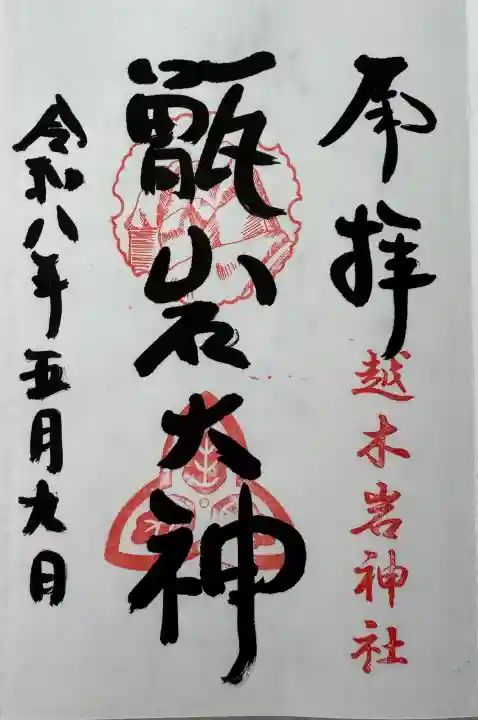 奉拝
越木岩神社
甑岩大神
令和八年五月九日